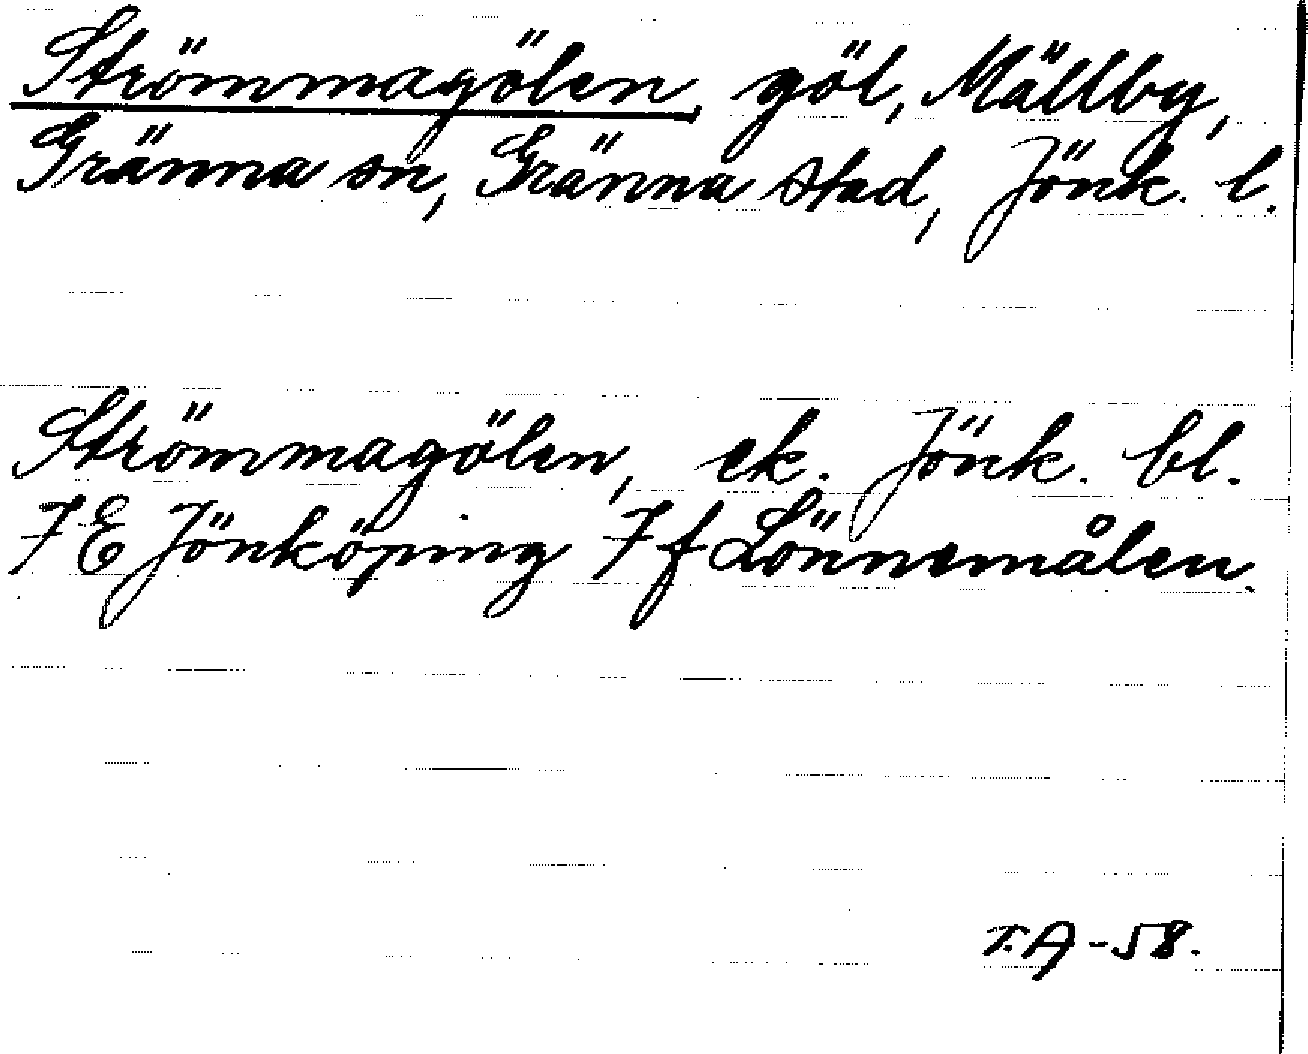 Strömmagölen, göl, Mällby,
Gränna sn, Gränna stad, Jönk. l.
Strömmagölen, ek. Jönk. bl.
7 E Jönköping 7 f Lönnemålen.
T.A -58.